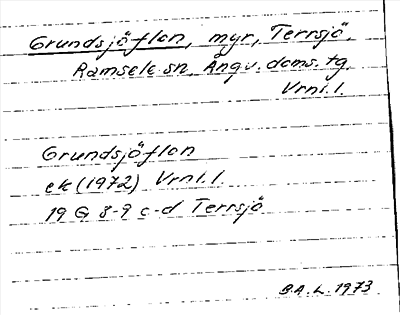 Grundsjöflon, myr, Terrsjö,
Ramsele sn, Ångv. doms. tg.
Vrnl.l.
Grundsjöflon
ek (1972) Vrnl.l.
19 G 8-9 c-d Terrsjö
B.A.L. 1973